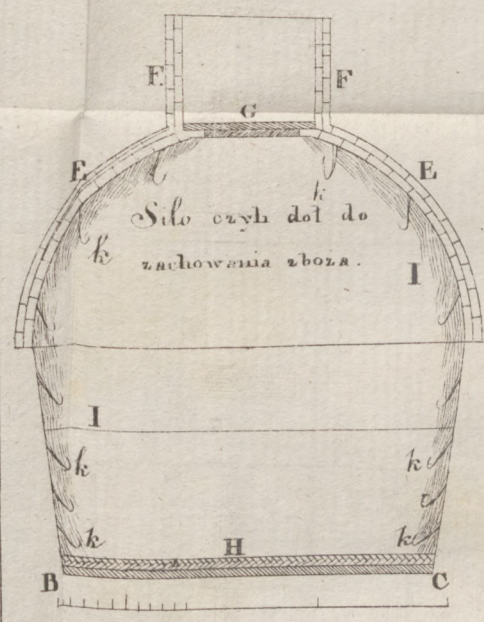 F F
G
E E
k
Silo czyli dół do
k
zachowania zboża.
I
I
k k
k k
H
B C